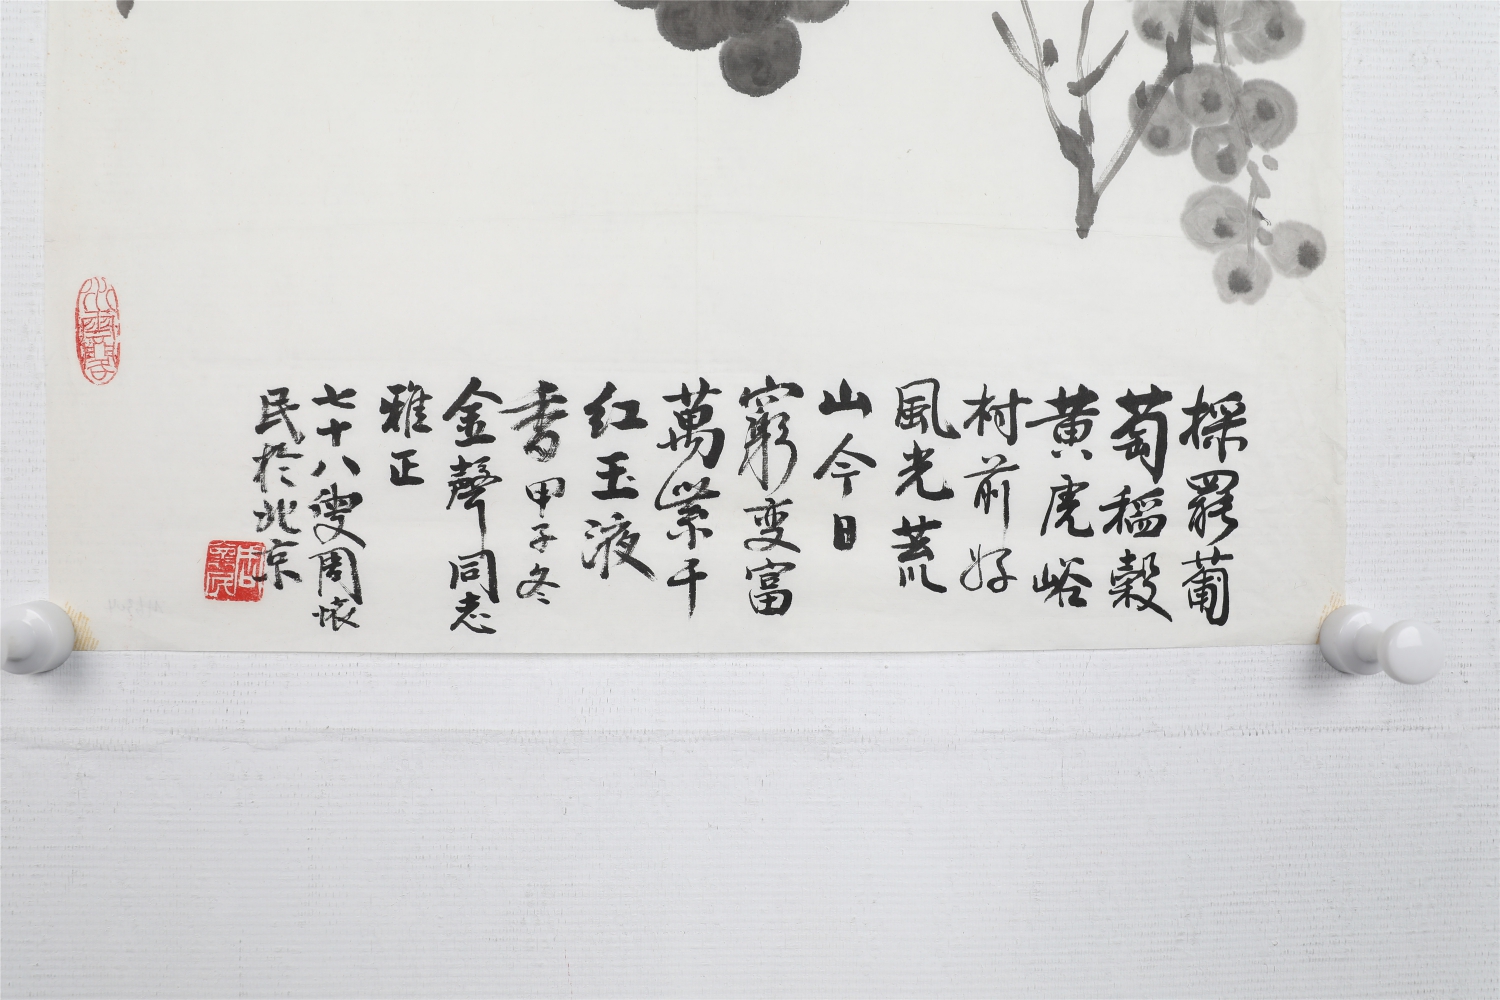 採罷葡
萄稻穀
黄虎峪
村前好
風光荒
山今日
窮变富
萬紫千
红玉液
香甲子冬
金聲同志
雅正
七十八叟周怀
民於北京
周懷民